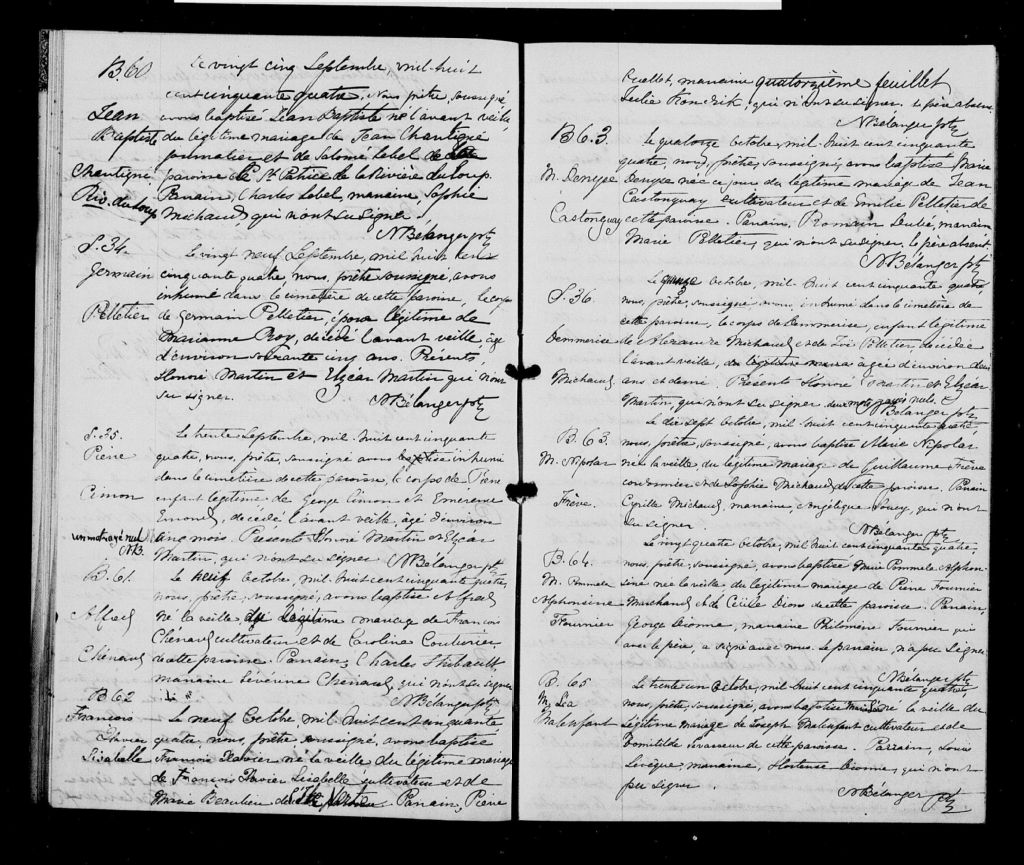 B60
Le vingt cinq Septembre, mil-huit
cent cinquante quatre. Nous prêtre, soussigné,
Jean
avons baptisé Jean Baptiste né l'avant veille,
Baptiste
du légitime mariage de Jean Chantigné
journalier et de Salomé Lebel
Chantigné
paroisse de St. Patrice de la Rivière du Loup.
Riv. du Loup
Parrain, Charles Lebel, marraine, Sophie
Michaud, qui n'ont su signer.
N Bélanger ptr
S. 34.
Le vingt neuf Septembre, mil huit cent
Germain
cinquante quatre, nous, prêtre soussigné, avons
inhumé dans le cimetière de cette paroisse, le corps
Pelletier
de Germain Pelletier, époux légitime de
Marianne Roy, décédé l'avant veille, âgé
d'environ soixante cinq ans. Présents,
Honoré Martin et Elzéar Martin qui n'ont
su signer.
N Bélanger ptr
S. 35.
Le trente Septembre, mil-huit cent cinquante
Pierre
quatre, nous, prêtre, soussigné avons baptisé inhumé
dans le cimetière de cette paroisse, le corps de Pierre
Cimon
enfant légitime de George Cimon et Emérence
Emond, décédé l'avant veille, âgé d'environ
un mot rayé nul
mois. Présents Honoré Martin et Elzéar
NB.
Martin, qui n'ont su signer
N Bélanger ptr
B. 61.
Le neuf Octobre, mil-huit cent cinquante quatre,
nous, prêtre, soussigné, avons baptisé Alfred
Alfred
né la veille du légitime mariage de François
Chénard cultivateur et de Caroline Couturier
Chénard
de cette paroisse. Parrain, Charles Thibault,
marraine Séverine Chénard, qui n'ont su signer
N Bélanger ptr
B 62
François
Le neuf Octobre mil huit cent cinquante
Xavier
quatre, nous, prêtre, soussigné, avons baptisé
Lisabelle
François Xavier né la veille du légitime mariage
de François Xavier Lisabelle cultivateur et de
Marie Beaulieu de Parrain, Pierre
Ouellet, marraine quatorzième feuillet
Julie, qui n'ont su signer. Le père absent.
N Bélanger ptr
B 63.
Le quatorze Octobre, mil-huit cent cinquante
quatre, nous, prêtre, soussigné, avons baptisé Marie
M. Denyse
Denyse née ce jour du légitime mariage de Jean
Castonguay cultivateur et de Emilie Pelletier de
Castonguay
cette paroisse. Parrain, Romain Dubé, marraine
Marie Pelletier, qui n'ont su signer. Le père absent
N Bélanger ptr
Le quinze Octobre, mil-huit cent cinquante quatre
S. 36.
nous, prêtre, soussigné avons, inhumé dans le cimetière de
cette paroisse, le corps de Demmerise, enfant légitime
Demmerise
de Michaud et de Zoé Pelletier, décédée
l'avant veille, âgée d'environ deux
Michaud
ans et demi. Présents Honoré Martin et Elzéar
Martin, qui n'ont su signer deux mots rayés nuls.
N Bélanger ptr
Le dix sept Octobre, mil-huit cent cinquante quatre
B. 63.
nous, prêtre, soussigné, avons baptisé Marie Nipolar
M. Nipolar
née la veille du légitime mariage de Guillaume Frève
cordonnier et de Sophie Michaud, de cette paroisse. Parrain
Frève.
Cyrille Michaud, marraine, Angélique Soucy, qui n'ont
su signer.
N Bélanger ptr
Le vingt quatre Octobre, mil huit cent cinquante quatre,
B. 64.
nous, prêtre, soussigné, avons baptisé Marie Pommela Alphon-
M. Pommela
sine née la veille du légitime mariage de Pierre Fournier
Alphonsine
Marchand et de Cécile Dion de cette paroisse. Parrain,
Fournier
George Dionne, marraine Philomène Fournier qui
avec le père, a signé avec nous. Le parrain, n'a pu signer.
N Bélanger ptr
B. 65
Le trente un Octobre, mil huit cent cinquante quatre
M. Léa
nous, prêtre, soussigné, avons baptisé née la veille du
Malenfant
légitime mariage de Joseph Malenfant cultivateur et de
Domitilde Levasseur de cette paroisse. Parrain, Louis
Levêque, marraine, Hortense Dionne, qui n'ont
pu signer.
N Bélanger ptr